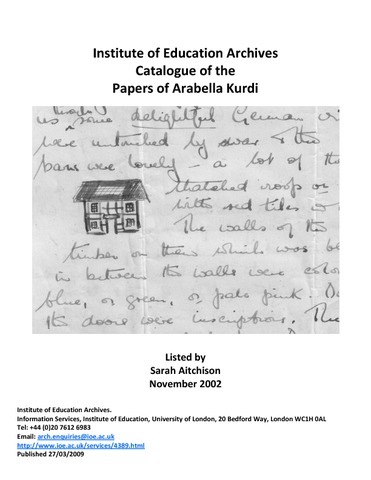 Institute of Education Archives
Catalogue of the
Papers of Arabella Kurdi
us some delightful German
were untouched by war & the
barns were lovely - a lot of the
thatched roofs or
with red tiles
The walls of the
timber on them which was
in between the walls were
blue, or green, or pale pink.
the doors were inscriptions. The
Listed by
Sarah Aitchison
November 2002
Institute of Education Archives.
Information Services, Institute of Education, University of London, 20 Bedford Way, London WC1H 0AL
Tel: +44 (0)20 7612 6983
Email: arch.enquiries@ioe.ac.uk
http://www.ioe.ac.uk/services/4389.html
Published 27/03/2009